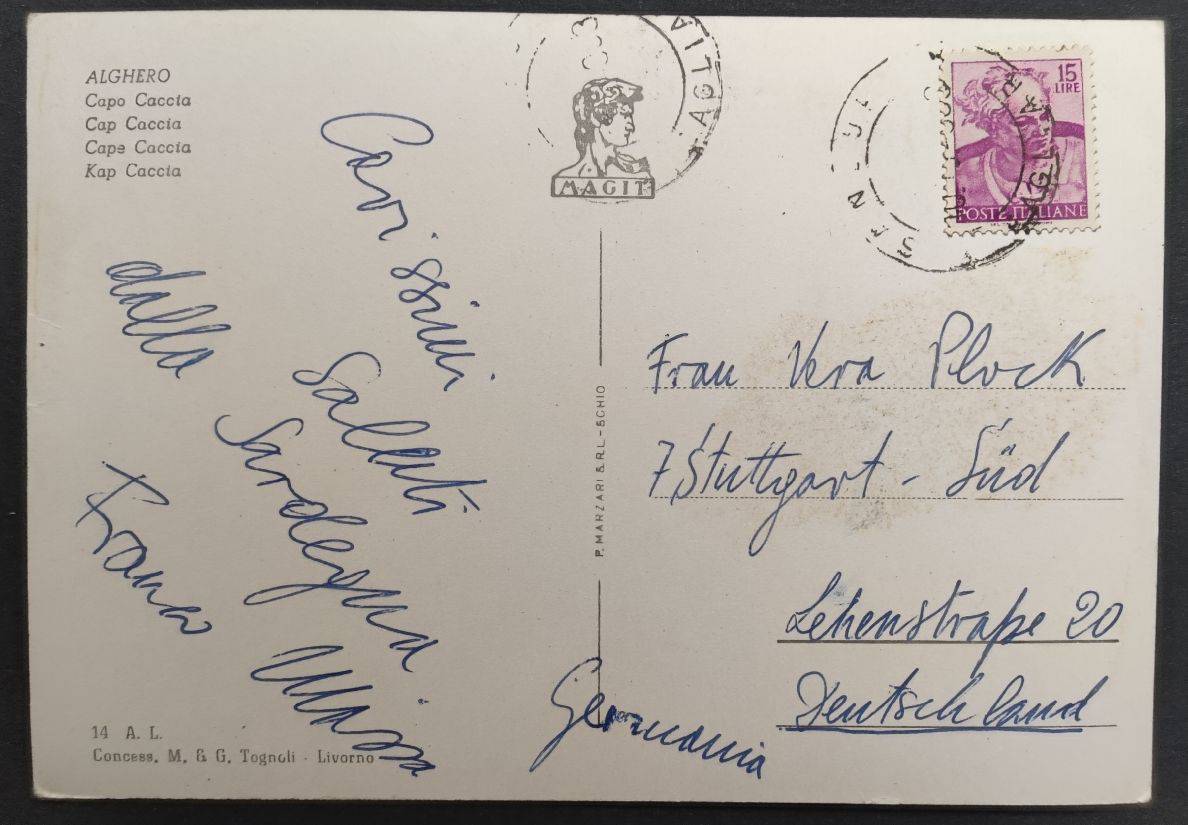 ALGHERO
Capo Caccia
Cap Caccia
Cape Caccia
Kap Caccia
MAGIT
15
LIRE
POSTE ITALIANE
Carissimi
Saluti
dalla Sardegna
Franco
Frau Vera Plock
7 Stuttgart - Süd
Lehenstraße 20
Deutschland
Germania
P. MARZARI S.R.L. - SCHIO
14 A. L.
Concess. M. & G. Tognoli - Livorno